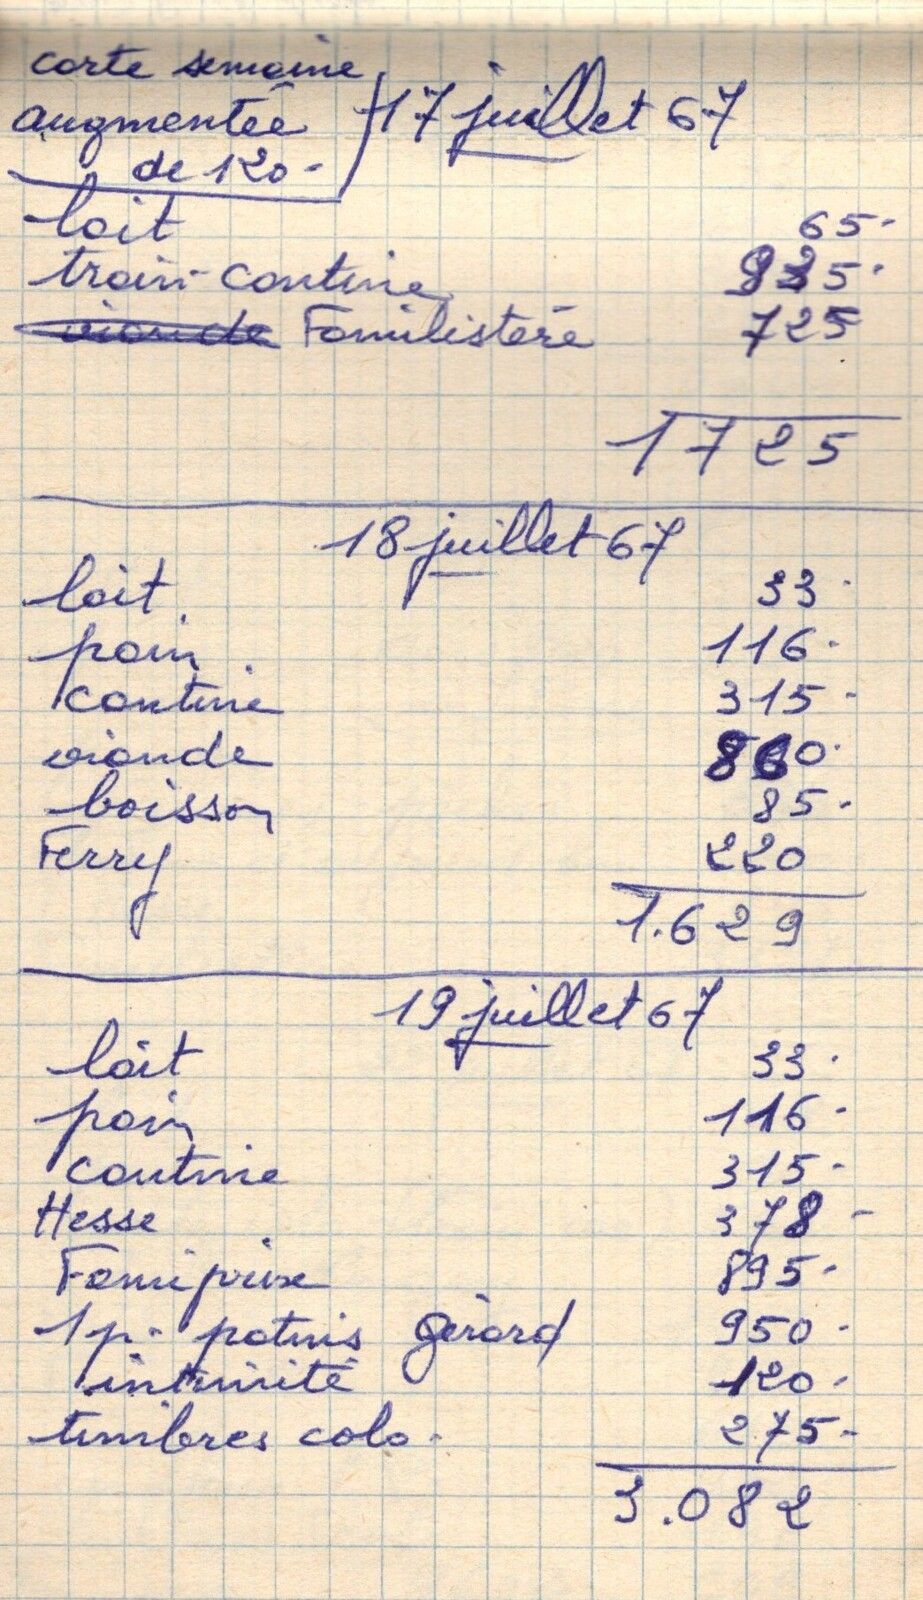 carte semaine
augmentée
de 120 -
17 juillet 67
lait 65 -
train - cantine 935 -
viande Familistère 725
1725
18 juillet 67
lait 33 -
pain 116 -
cantine 315 -
viande 860 -
boisson 85 -
Ferry 220
1.629
19 juillet 67
lait 33 -
pain 116 -
cantine 315 -
Hesse 378 -
Famiprix 895 -
1 p. patins Gérard 950 -
intimité 120 -
timbres colo. 275 -
3.082